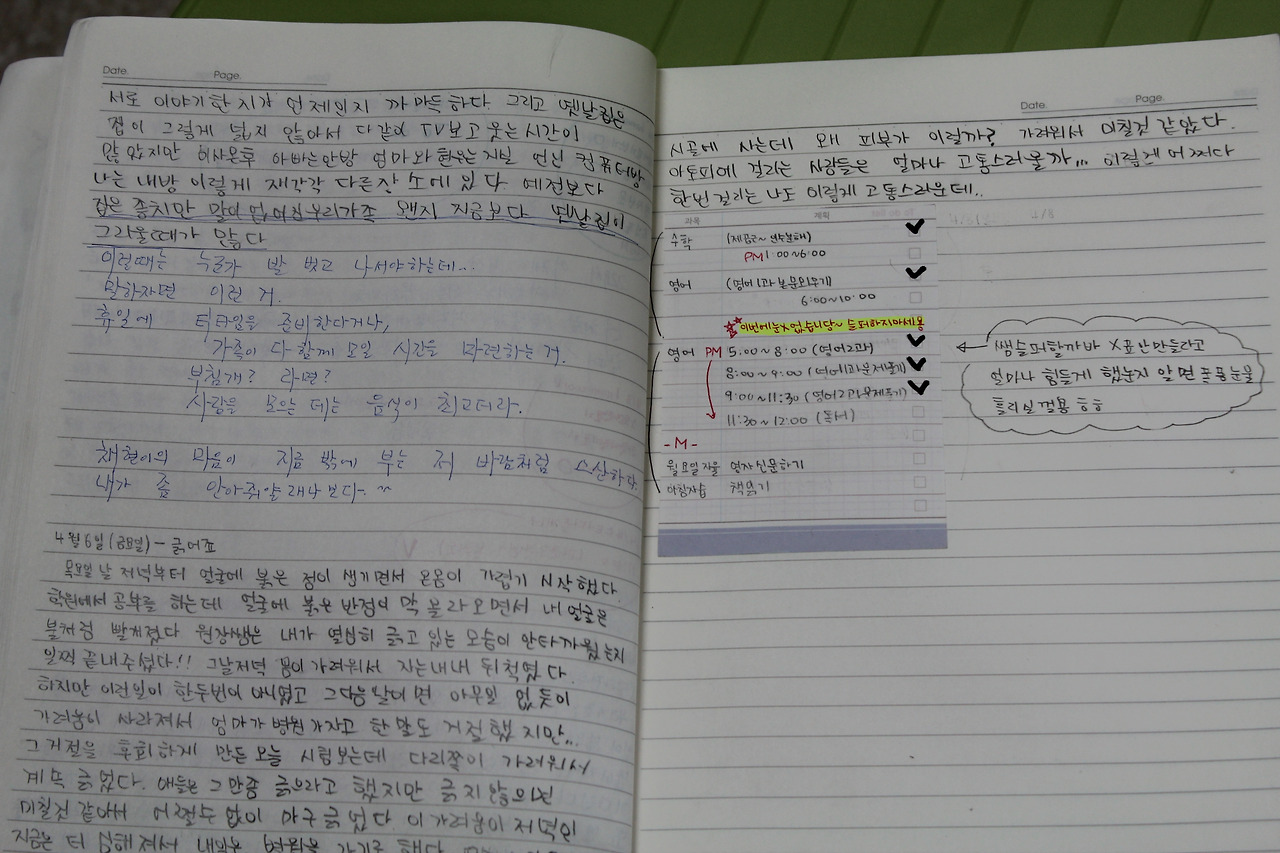 Date. Page.
서로 이야기한지가 언제인지 까마득하다. 그리고 옛날집은
집이 그렇게 넓지 않아서 다같이 TV보고 웃는 시간이
많았지만 이사온후 아빠는안방 엄마와 현우는거실 언닌 컴퓨터방
나는 내방 이렇게 제각각 다른장소에 있다. 예전보다
집은 좋지만 말이 없어진우리가족 왠지 지금보다 옛날집이
그리울때가 많다
이럴때는 누군가 발 벗고 나서야하는데...
말하자면 이런 거.
휴일에 티타임을 준비한다거나,
가족이 다 함께 모일 시간을 마련하는 거.
부침개? 라면?
사람을 모으는 데는 음식이 최고더라.
채현이의 마음이 지금 밖에 부는 저 바람처럼 스산하다.
내가 좀 안아줘야 할래나 보다~
4월 6일 (금요일) - 긁어죠
목요일 날 저녁부터 얼굴에 붉은 점이 생기면서 온몸이 가렵기 시작했다
학원에서 공부를 하는데 얼굴에 붉은 반점이 막 올라오면서 내 얼굴은
불처럼 빨개졌다 원장쌤은 내가 열심히 긁고 있는 모습이 안타까웠는지
일찍 끝내주셨다!! 그날저녁 몸이 가려워서 자는내내 뒤척였다.
하지만 이런일이 한두번이 아니였고 그다음날이면 아무일 없듯이
가려움이 사라져서 엄마가 병원가자고 한말도 거절했지만...
그 거절을 후회하게 만든 오늘 시험보는데 다리쪽이 가려워서
계속 긁었다. 애들은 그만좀 긁으라고 했지만 긁지않으면
미칠것 같아서 어쩔수 없이 마구 긁었다 이 가려움이 저녁인
지금은 더 심해져서 내일은 병원을 가기로 했다.
Date. Page.
시골에 사는데 왜 피부가 이럴까? 가려워서 미칠것 같았다.
아토피에 걸리는 사람들은 얼마나 고통스러울까... 이렇게 어쩌다
한번 걸리는 나도 이렇게 고통스러운데..
과목 계획
수학
PM 1:00~6:00
영어 (영어1과 본문외우기)
6:00~10:00
이번에는X없습니당~ 슬퍼하지마세용
영어 PM 5:00~8:00 (영어2과)
8:00~9:00 (영어1과문제풀기)
9:00~11:30 (영어2과문제풀기)
11:30~12:00 (독서)
-M-
월요일자율 영자신문하기
아침자습 책읽기
쌤슬퍼할까바 X표안만들라고
얼마나 힘들게 했눈지 알면 폭풍눈물
흘리실껄용 흐흐